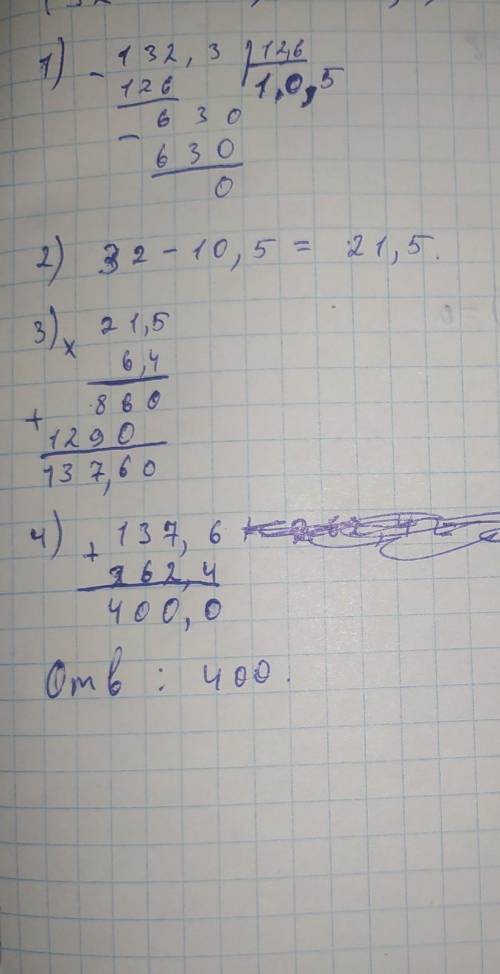 1) - 132,3 | 12,6
126 1,0,5
- 630
630
0
2) 32 - 10,5 = 21,5.
3) x 21,5
6,4
860
+ 1290
137,60
4) + 137,6
262,4
400,0
Отв : 400.